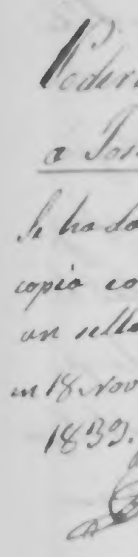 Poder
a Jos
Se ha da
copia co
un sello
en 18 Nov
1839.